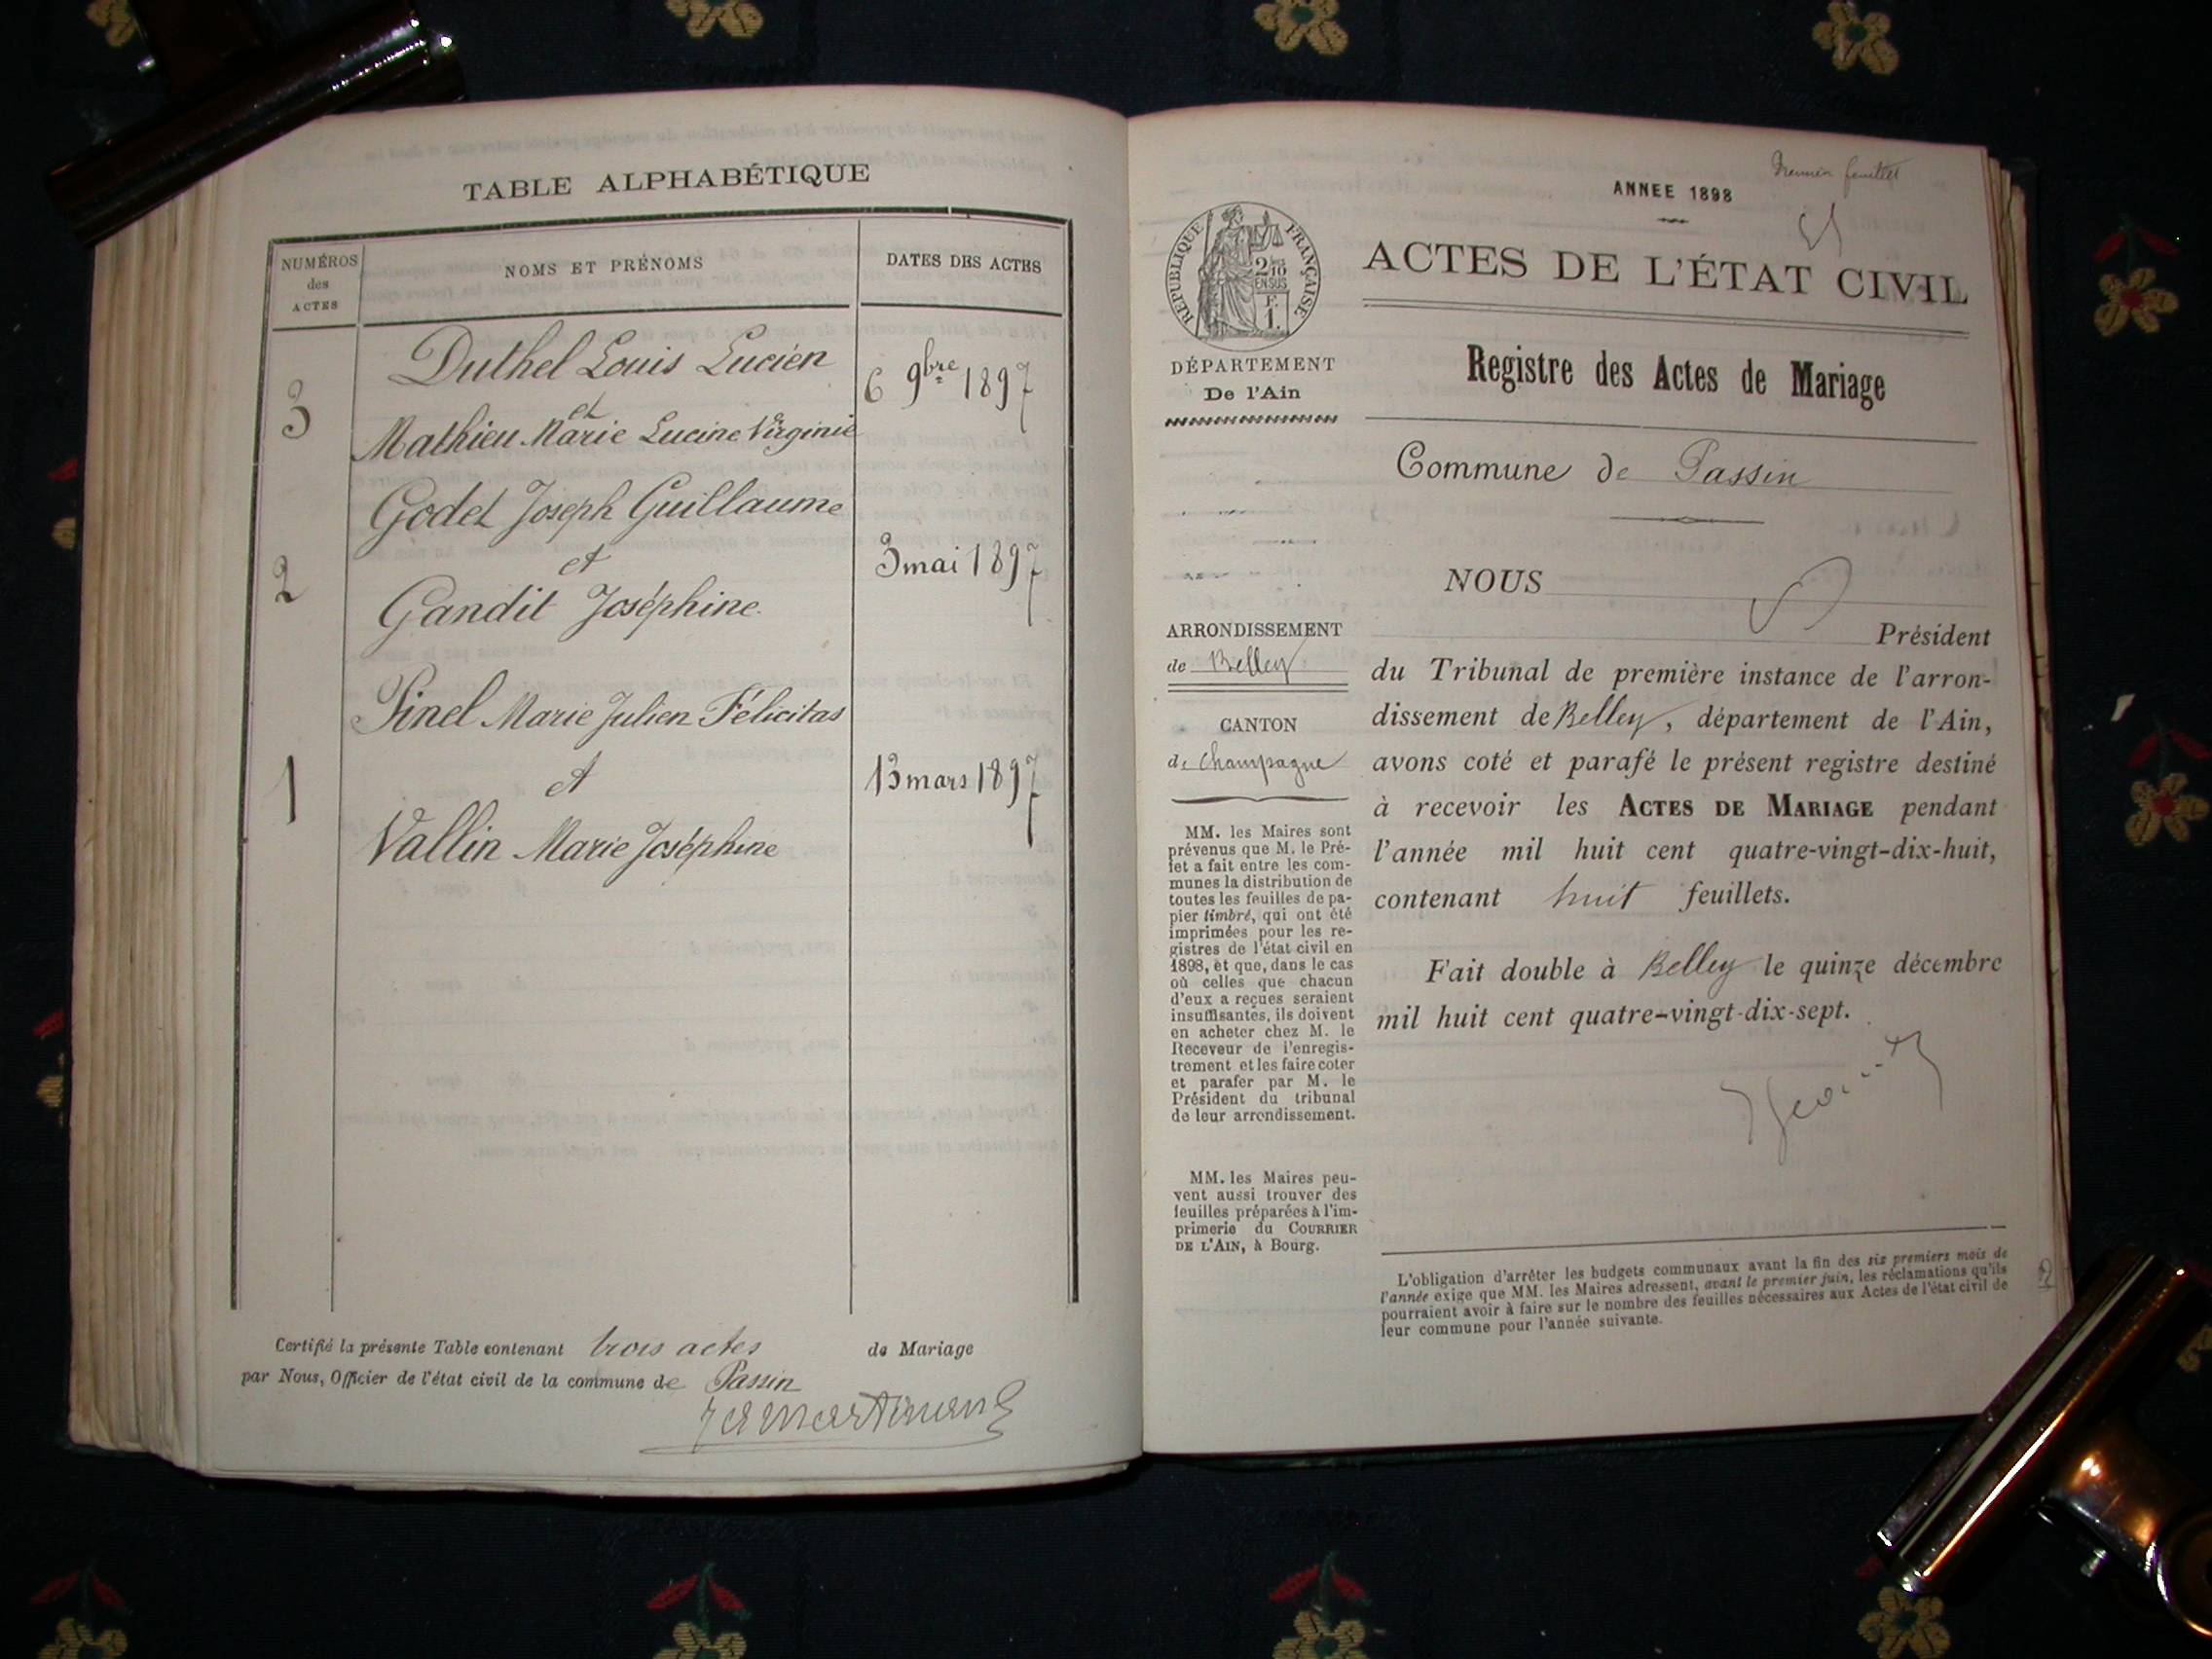 TABLE ALPHABÉTIQUE
NUMÉROS
des
ACTES
NOMS ET PRÉNOMS
DATES DES ACTES
Duthel Louis Lucien
3
et
6 9bre 1897
Mathieu Marie Lucine Virginie
Godet Joseph Guillaume
2
et
3 mai 1897
Gandit Joséphine.
Pinel Marie Julien Félicitas
1
et
13 mars 1897
Vallin Marie Joséphine
Certifié la présente Table contenant trois actes de Mariage
par Nous, Officier de l'état civil de la commune de Passin
Premier feuillet
ANNEE 1898
RÉPUBLIQUE FRANÇAISE
2/10
EN SUS
F.
1.
ACTES DE L'ÉTAT CIVIL
DÉPARTEMENT
De l'Ain
Registre des Actes de Mariage
Commune de Passin
NOUS
Président
ARRONDISSEMENT
de Belley
CANTON
de Champagne
MM. les Maires sont
prévenus que M. le Pré-
fet a fait entre les com-
munes la distribution de
toutes les feuilles de pa-
pier timbré, qui ont été
imprimées pour les re-
gistres de l'état civil en
1898, et que, dans le cas
où celles que chacun
d'eux a reçues seraient
insuffisantes, ils doivent
en acheter chez M. le
Receveur de l'enregis-
trement et les faire coter
et parafer par M. le
Président du tribunal
de leur arrondissement.
MM. les Maires peu-
vent aussi trouver des
feuilles préparées à l'im-
primerie du COURRIER
DE L'AIN, à Bourg.
du Tribunal de première instance de l'arron-
dissement de Belley, département de l'Ain,
avons coté et parafé le présent registre destiné
à recevoir les ACTES DE MARIAGE pendant
l'année mil huit cent quatre-vingt-dix-huit,
contenant huit feuillets.
Fait double à Belley le quinze décembre
mil huit cent quatre-vingt-dix-sept.
L'obligation d'arrêter les budgets communaux avant la fin des six premiers mois de
l'année exige que MM. les Maires adressent, avant le premier juin, les réclamations qu'ils
pourraient avoir à faire sur le nombre des feuilles nécessaires aux Actes de l'état civil de
leur commune pour l'année suivante.